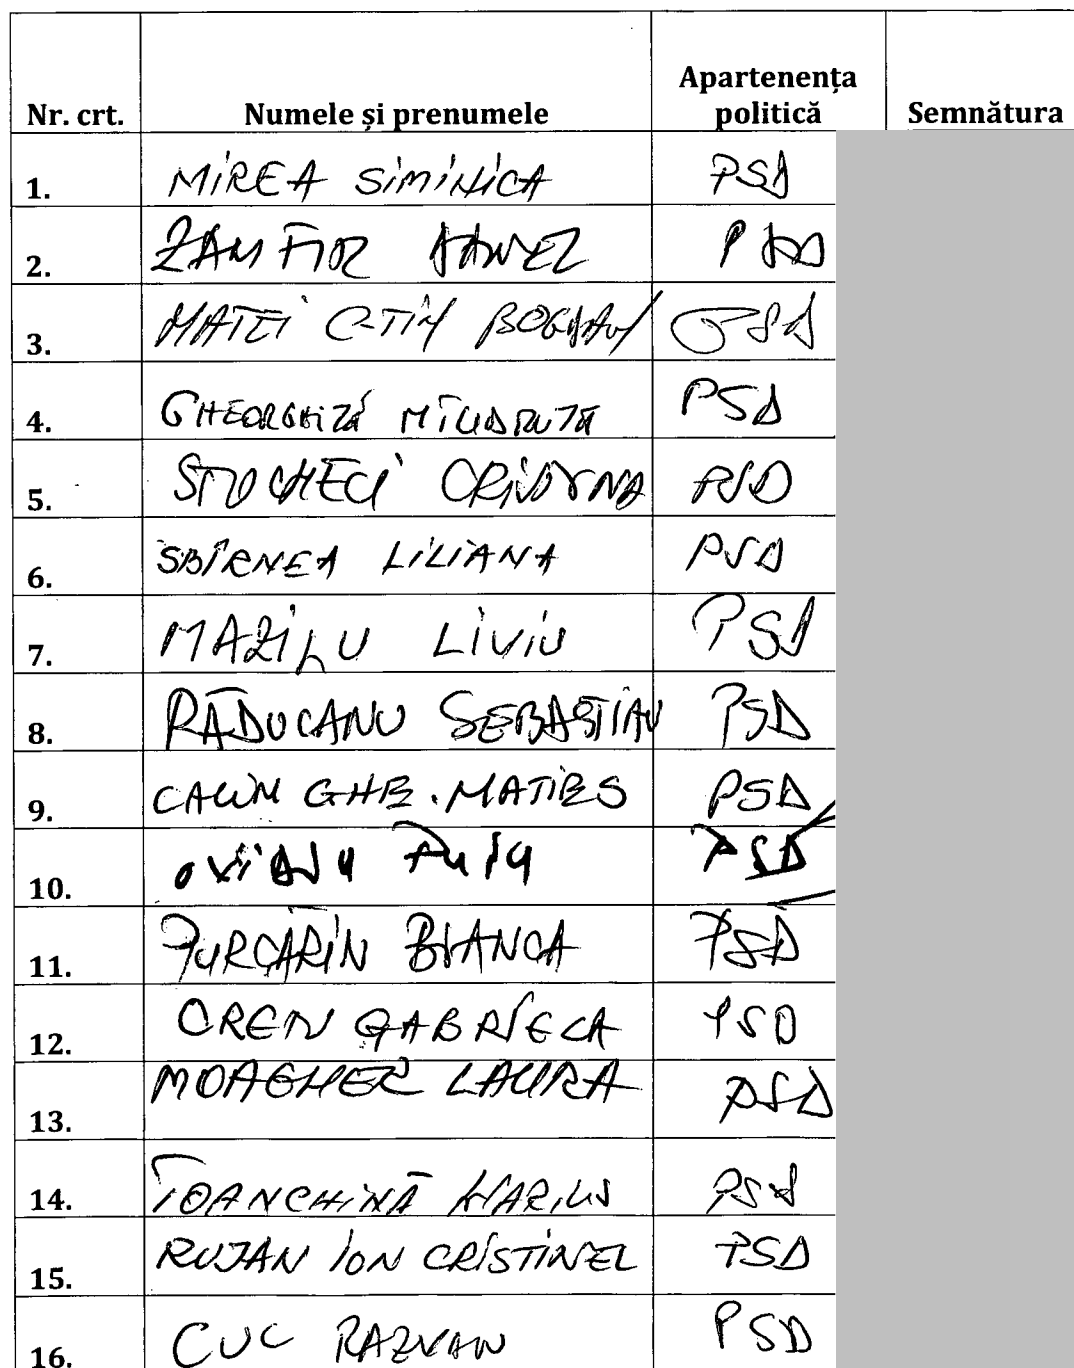 Nr. crt. Numele și prenumele Apartenența politică Semnătura
1. MIREA SIMINICA PSD
2. ZAMFIR DANIEL PSD
3. MATEI C-TIN BOGDAN PSD
4. GHEORGHIȚĂ MILUȚĂ PSD
5. STOCHECI CRISTINA PSD
6. SBÎRNEA LILIANA PSD
7. MAZILU LIVIU PSD
8. RĂDUCANU SEBASTIAN PSD
9. CALIN GHE. MATIEȘ PSD
10. OVIDIU PUIU PSD
11. PURCĂRIN BIANCA PSD
12. CREȚU GABRIELA PSD
13. MOAGHER LAURA PSD
14. IOANCHINĂ MARIUS PSD
15. RUJAN ION CRISTINEL PSD
16. CUC RAZVAN PSD